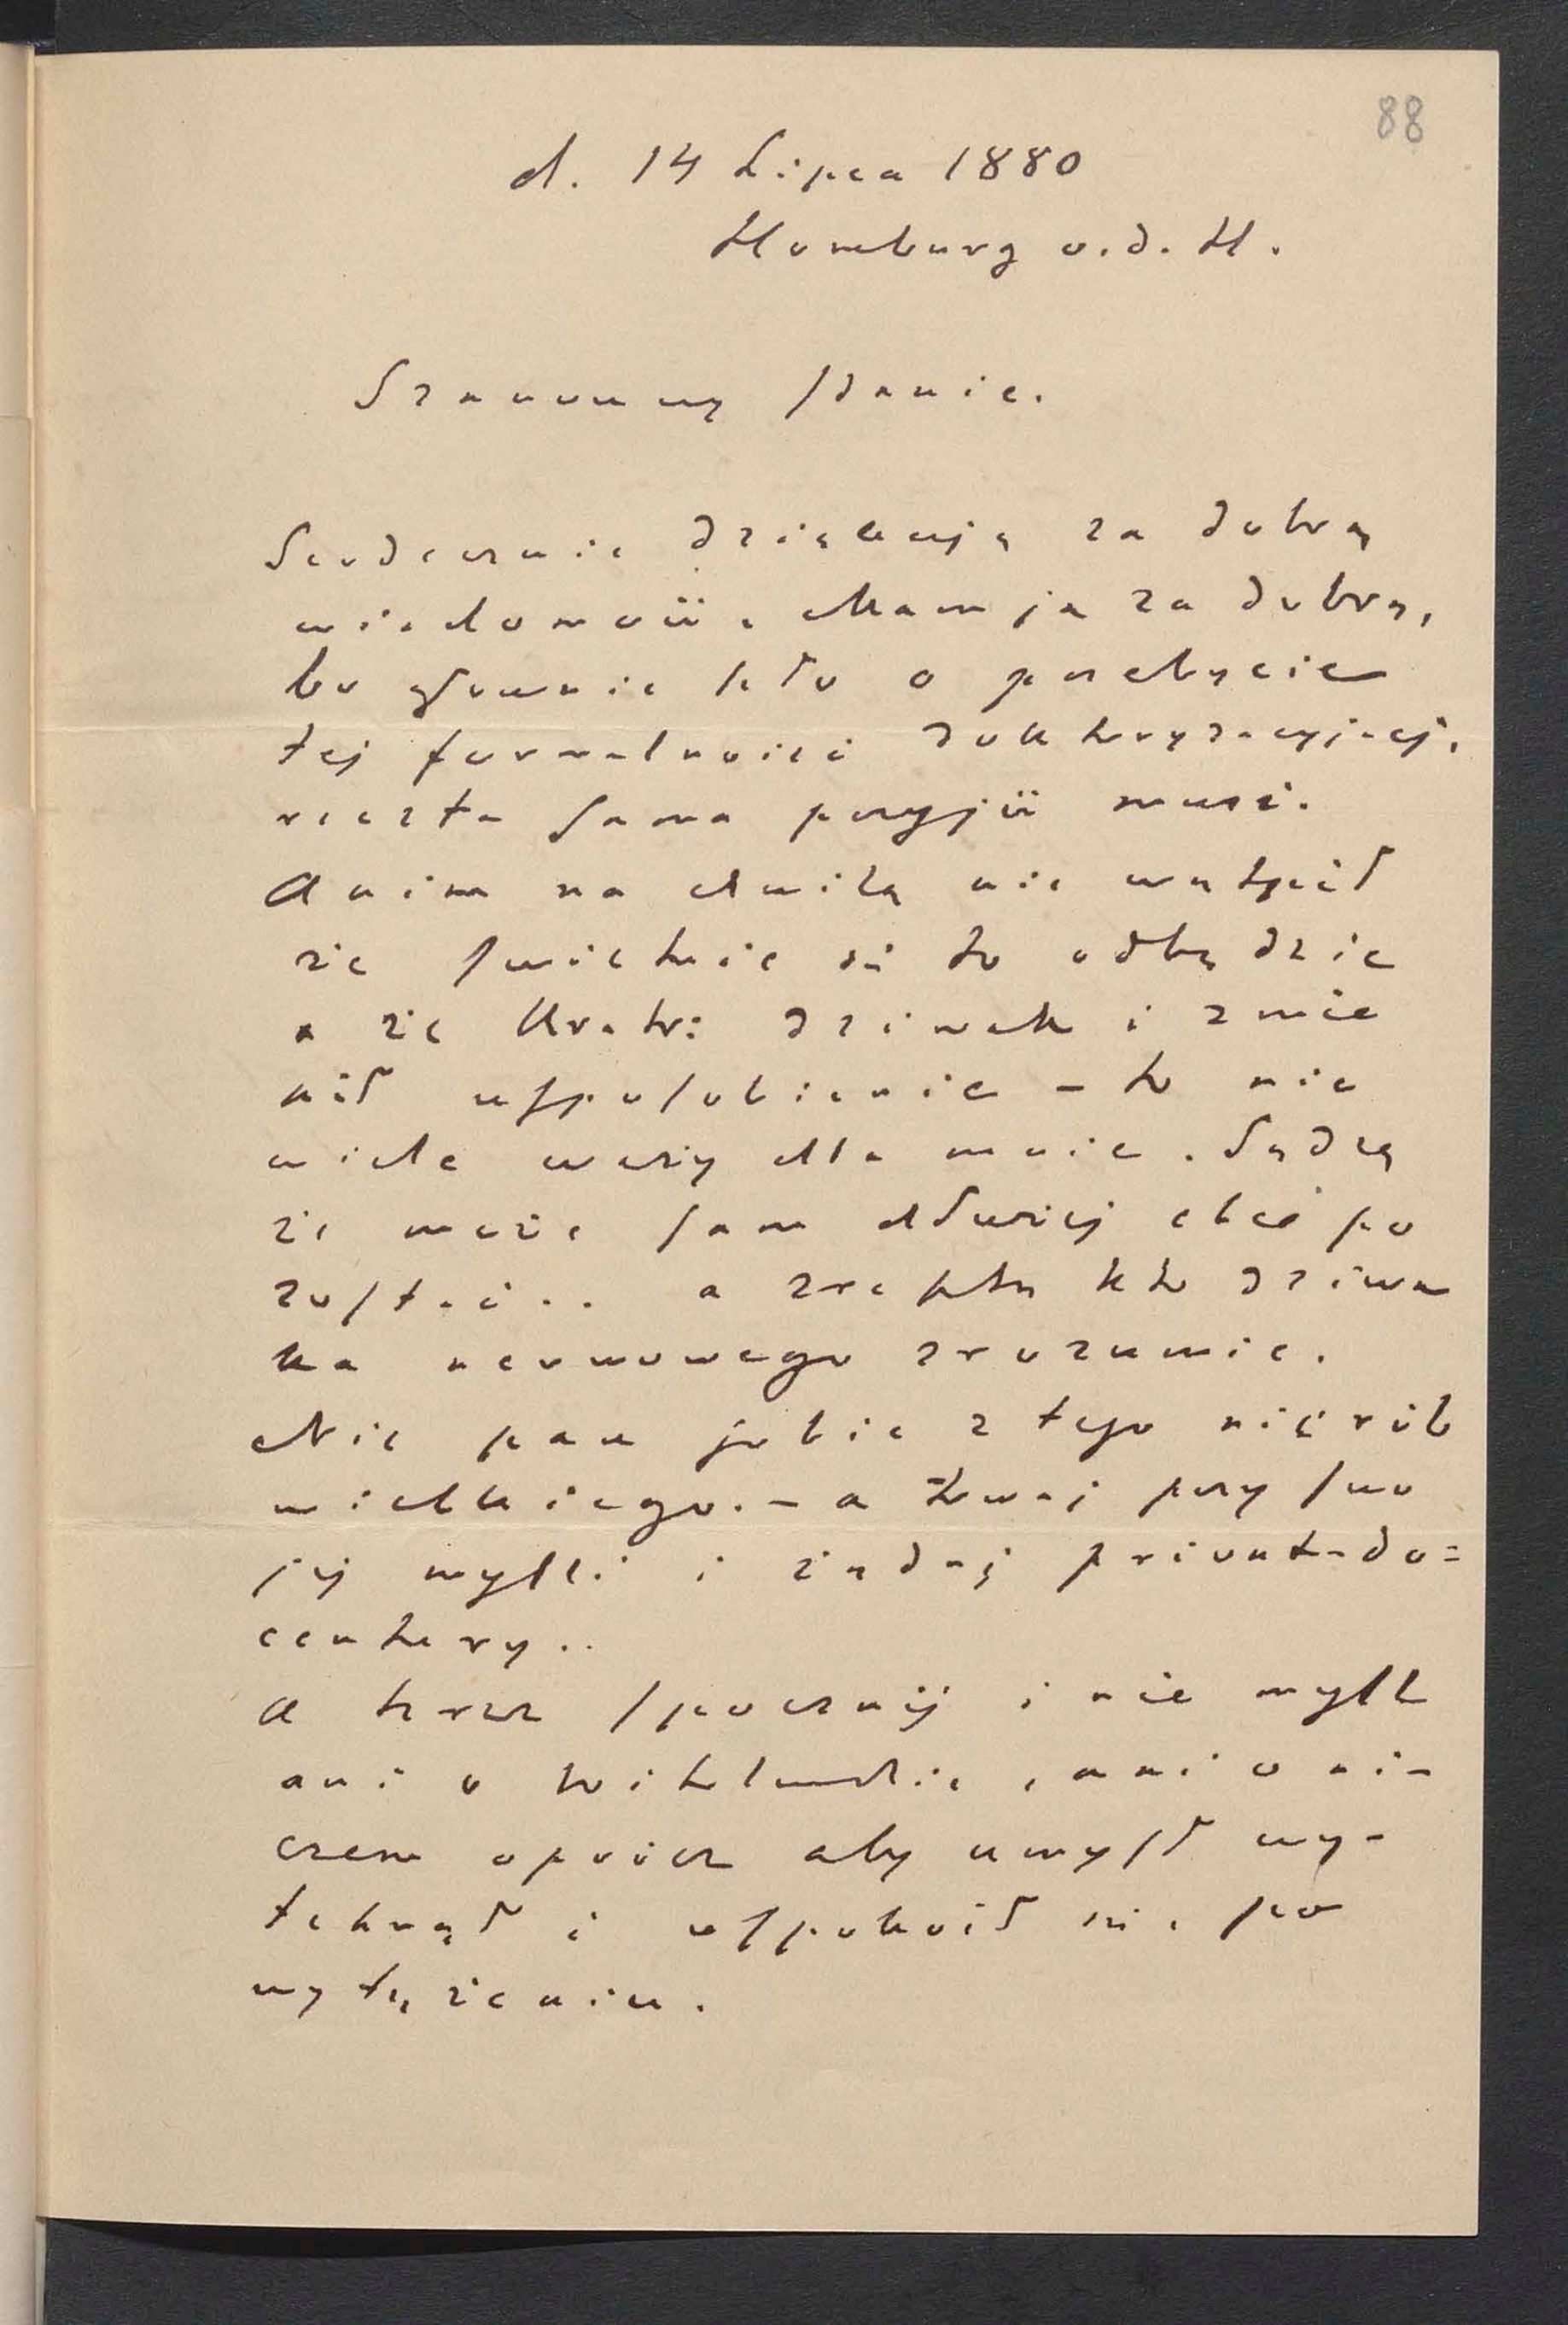 88
d. 14 Lipca 1880
Homburg v. d. H.
Szanowny Panie.
Serdecznie dziękuję za dobrą
wiadomość. Mam ją za dobrą,
bo głownie szło o przebycie
tej formalności doktoryzacyjnej,
reszta sama przyjść musi.
Anim na chwilę nie wątpił
że świetnie się to odbędzie
a że Kratri dziwak i zmie
nił usposobienie – to nie
wiele waży dla mnie. Sądzę
że może sam dłużej chce po
zostać.. a zresztą kto dziwa
ka nerwowego zrozumie.
Nic pan sobie z tego nie rób
wielkiego. – a trwaj przy swo
jej myśli i żądaj privat-do=
century..
A teraz spocznij i nie myśl
ani o , ani o ni-
czem oprócz aby umysł wy-
tchnął i uspokoił się po
wytężeniu.